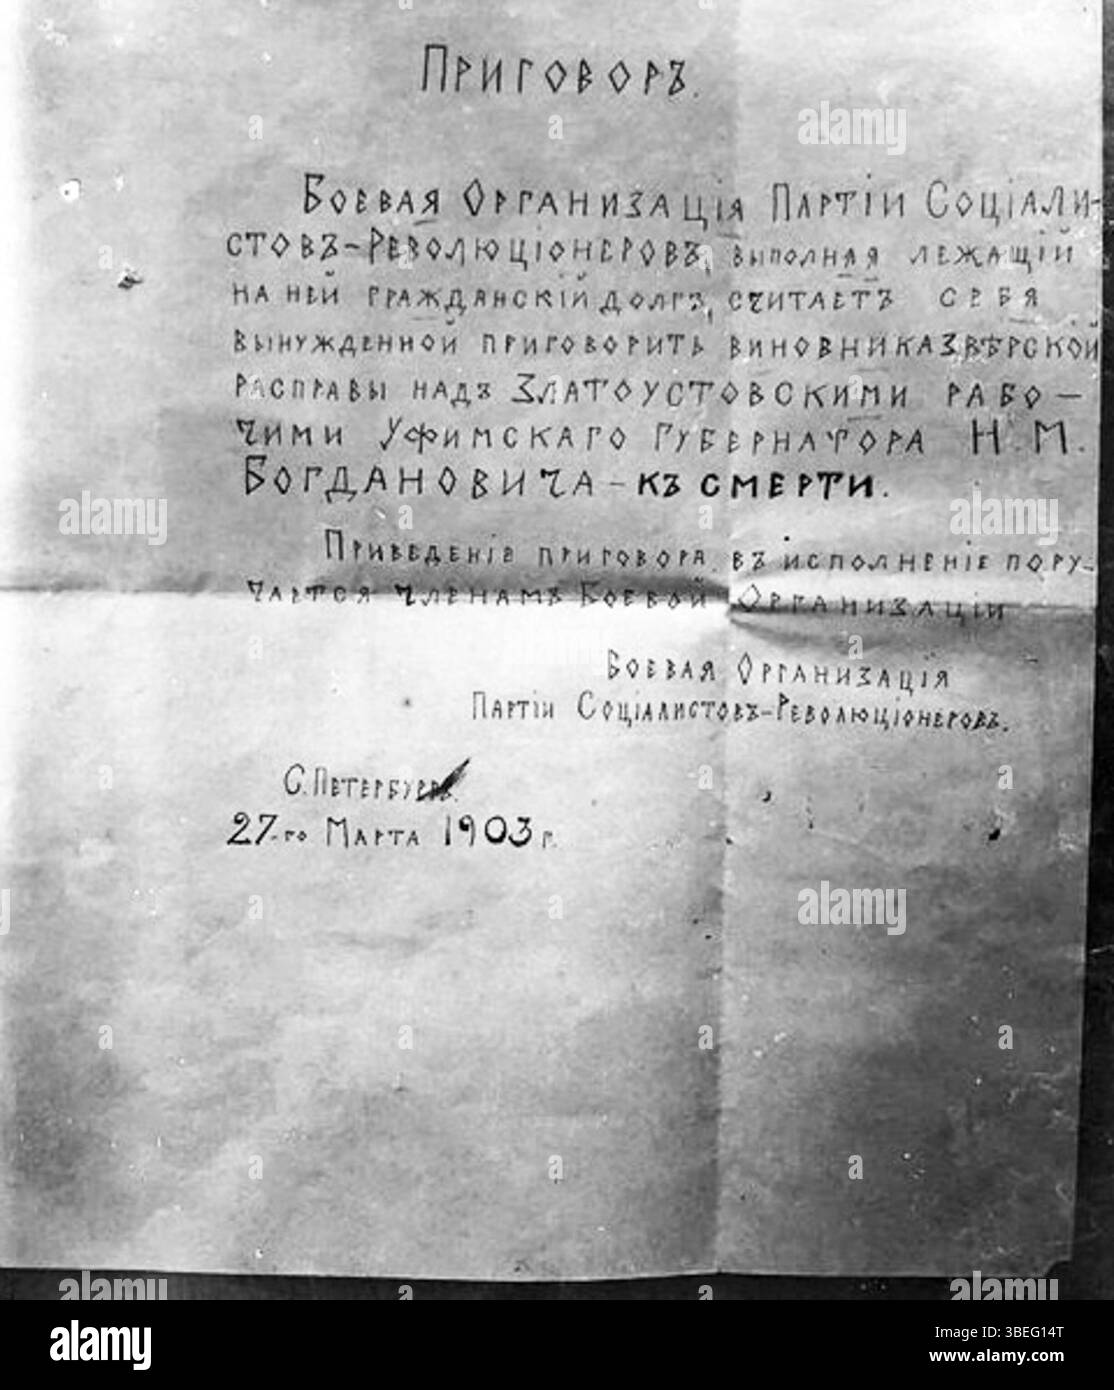 Приговоръ.
Боевая Организація Партіи Соціали-
стовъ-Революціонеровъ, выполная лежащій
на ней гражданскій долгъ, считаетъ себя
вынужденной приговорить виновника звѣрской
расправы надъ Златоустовскими рабо-
чими Уфимскаго Губернатора Н. М.
Богдановича - къ смерти.
Приведеніе приговора въ исполненіе пору-
чается членамъ Боевой Организаціи
Боевая Организація
Партіи Соціалистовъ-Революціонеровъ.
С. Петербургъ.
27-го Марта 1903 г.
alamy
Image ID: 3BEG14T
www.alamy.com